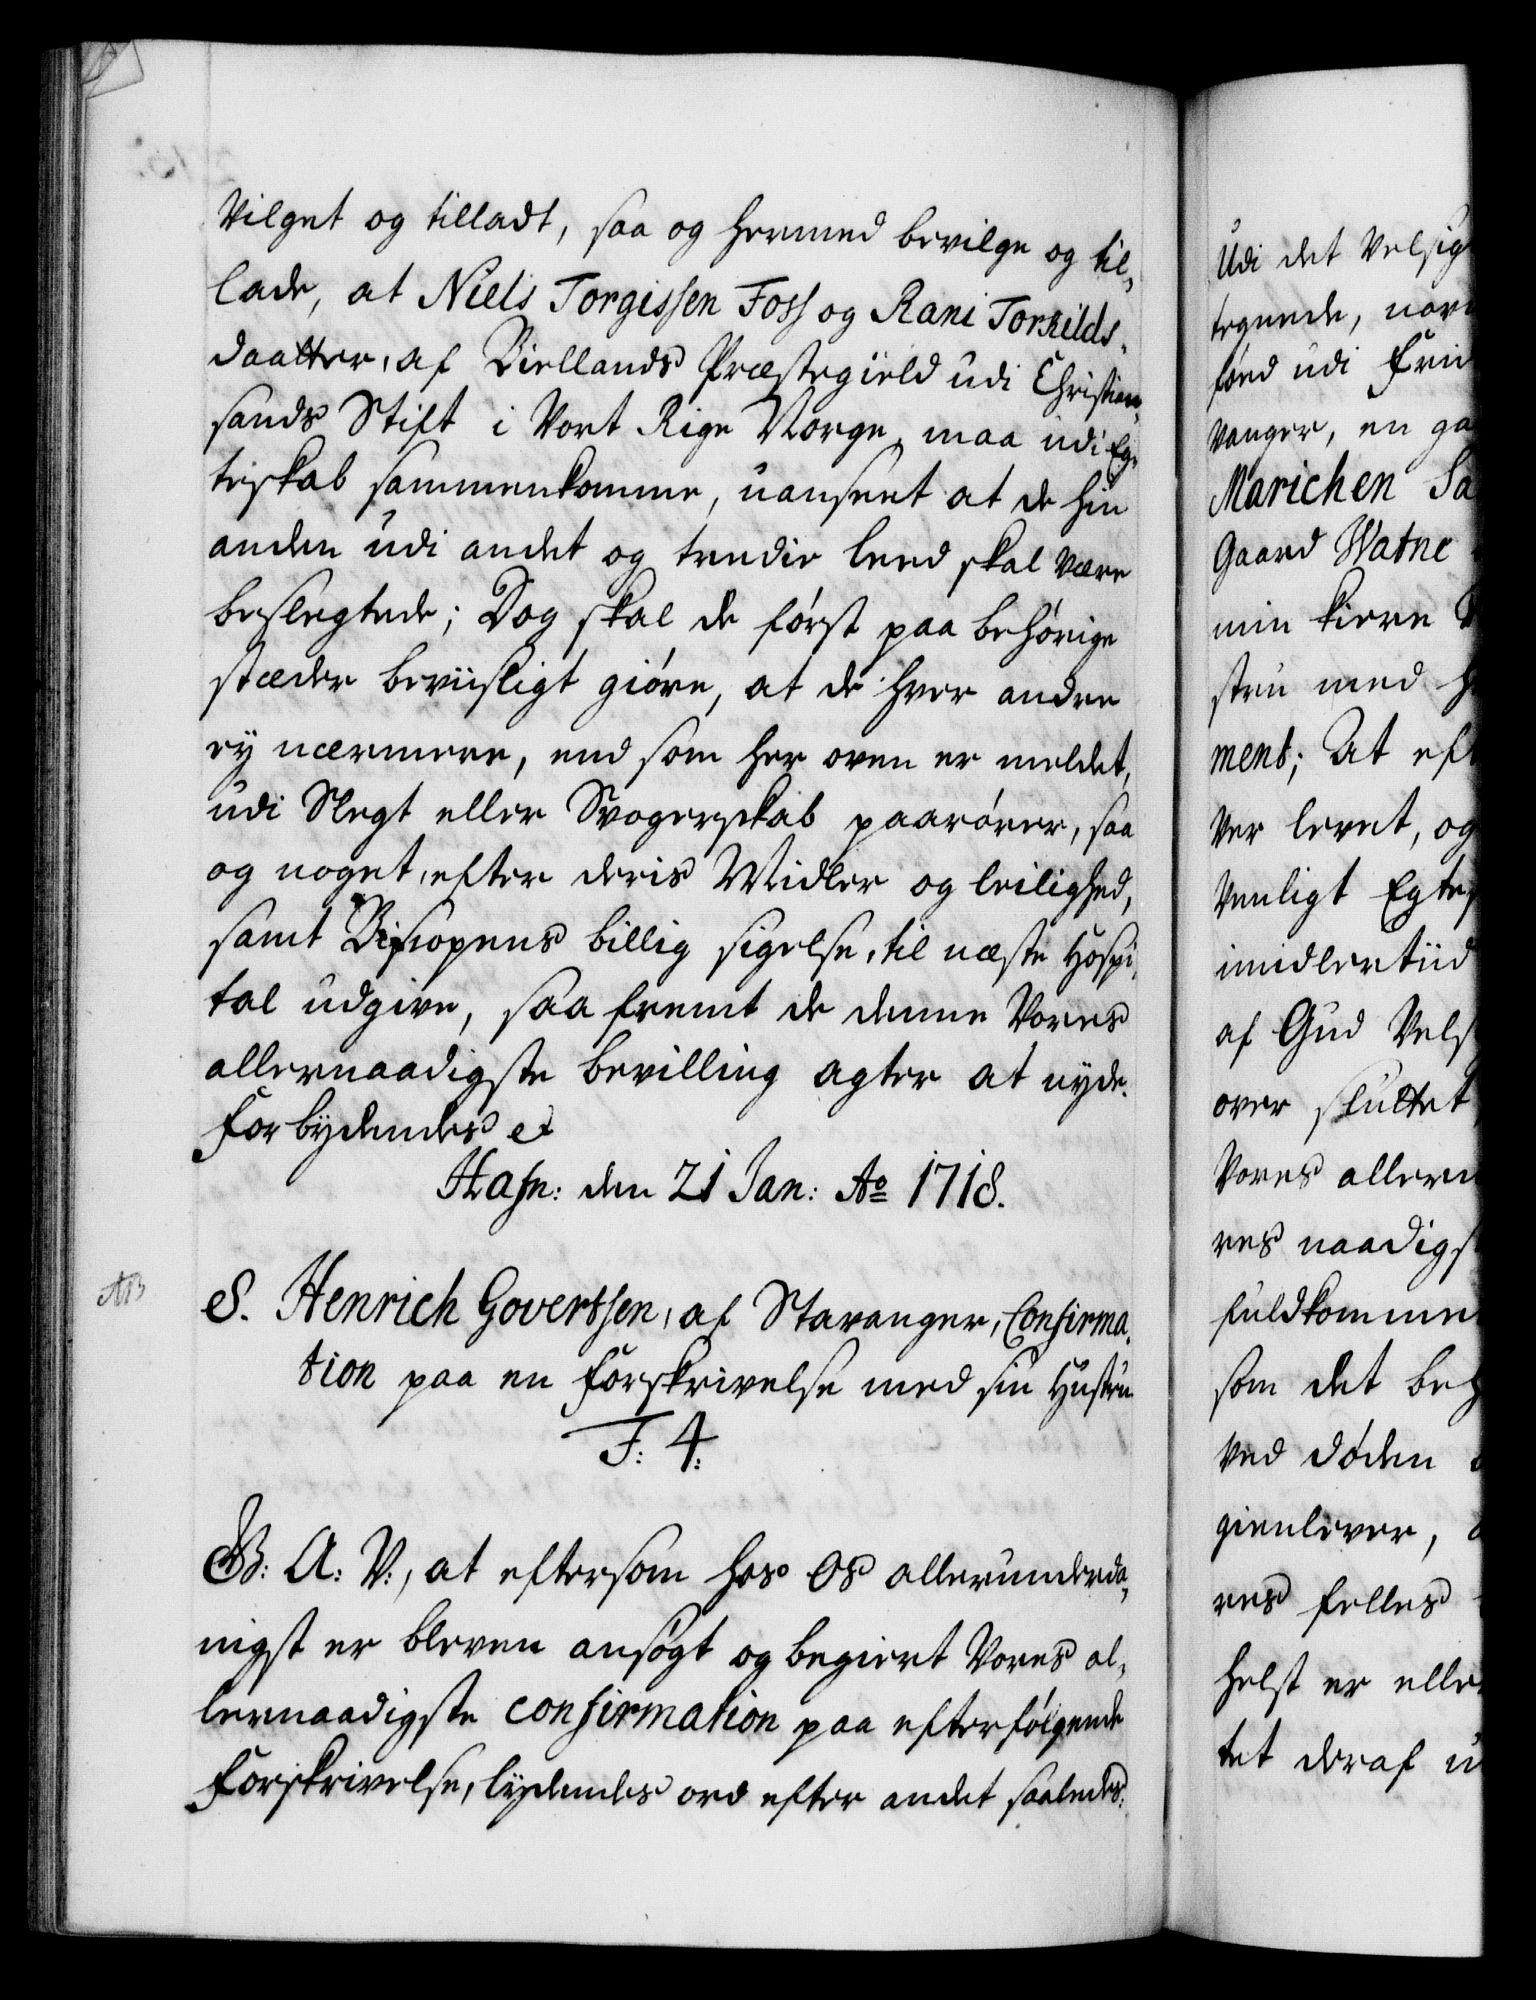 vilget og tilladt, saa og hermed bevilge og til,
lade, at Niels Torgissen Foss og Rani Torkilds,
daatter, af Biellands Præstegield udi Christian,
sands Stift i Vort Rige Norge, maa udi Eg,
teskab sammenkomme, uanseet at de hin
anden udi andet og tredie leed skal være
beslegtede; Dog skal de først paa behørige
stæder beviisligt giøre, at de hver andre
ey nærmere, end som her oven er meldet,
udi Slegt eller Svogerskab paarører, saa
og noget, efter deris Midler og leilighed,
samt Biscopens billig sigelse, til næste Hospi,
tal udgive, saa fremt de denne Vores
allernaadigste bevilling agter at nyde.
Forbydendes et
Hafn: den 21 Jan: Ao 1718.
S. Henrich Govertssen, af Stavanger, Confirma,
tion paa en Forskrivelse med sin Hustru
F: 4:
G: A: V:, at eftersom hos Os allerunderda,
nigst er bleven ansøgt og begiert Vores al,
lernaadigste confirmation paa efterfølgende
Forskrivelse, lydendes ord efter andet saaledes:
Udi det Velsig
tegnede, nor
føed udi Frid
vanger, en ga
Marichen Sa
Gaard Watne
min kiere
stru med h
ment; At eft
ver levet, og
venligt Egtes
imidlertiid
af Gud Vels
over sluttet
Vores allern
res naadigs
fuldkomme
som det beh
ved døden
gienlever,
res felles
helst er elle
tet deraf u